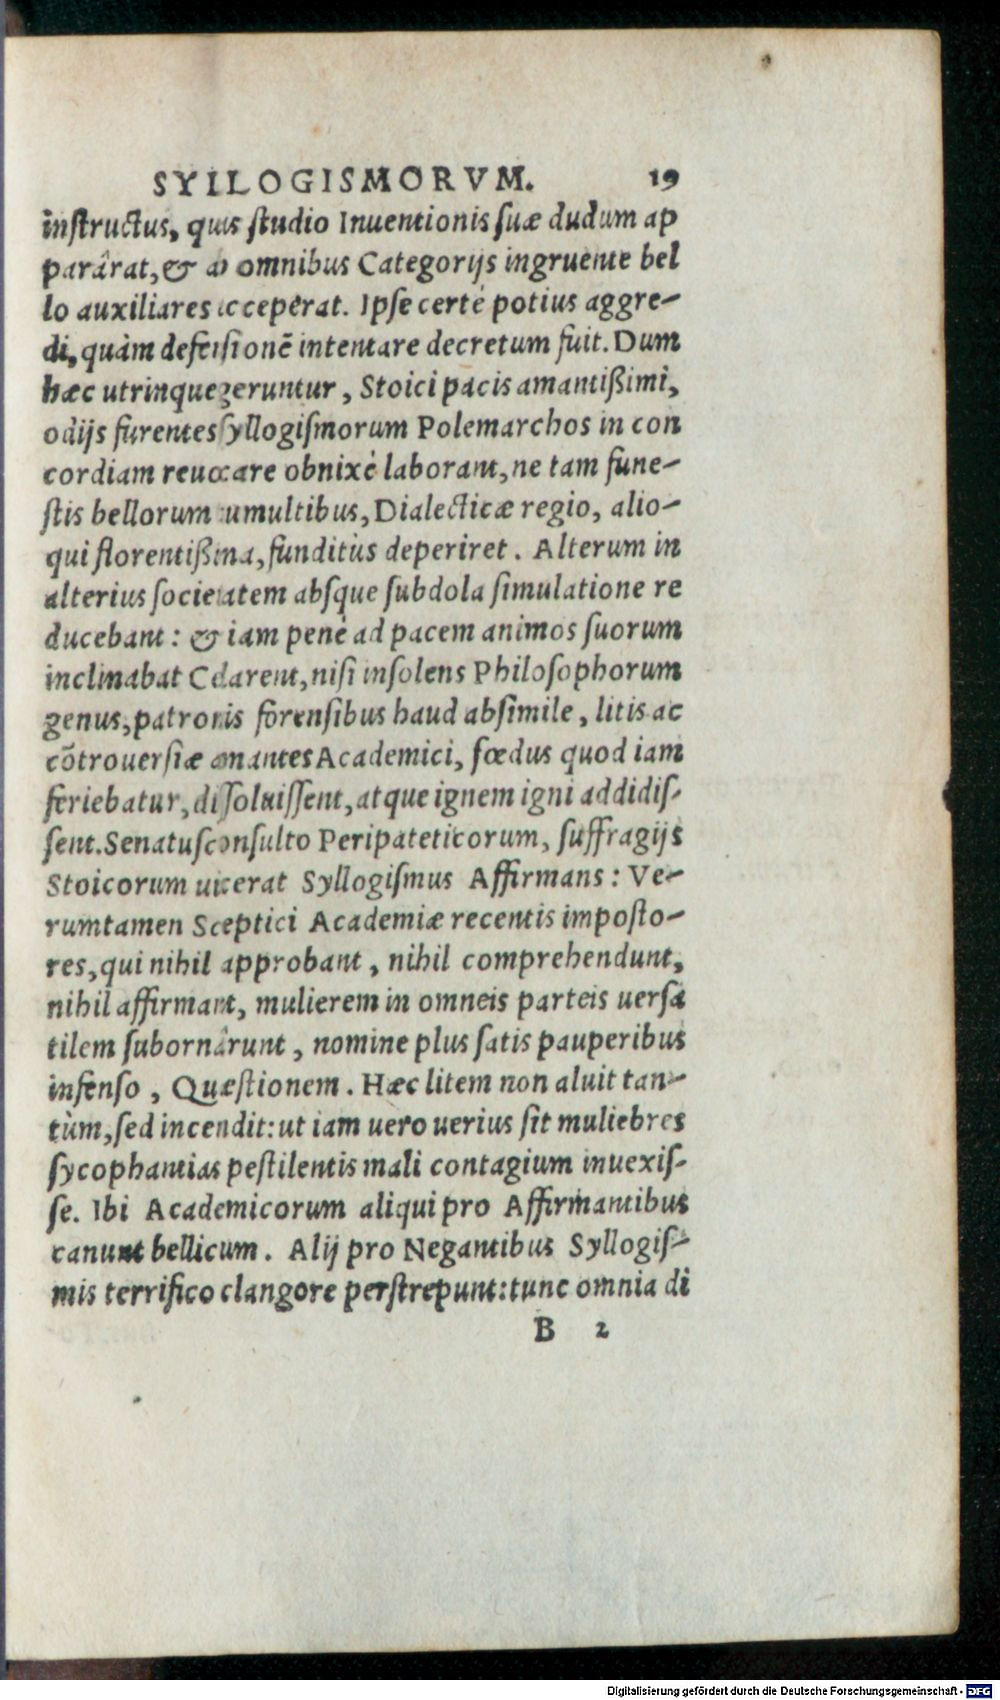 SYLLOGISMORVM. 19
instructus, quas studio Inuentionis suæ dudum ap
parârat, & ab omnibus Categorijs ingruente bel
lo auxiliares acceperat. Ipse certè potius aggre-
di, quàm defensionē intentare decretum fuit. Dum
hæc utrinque geruntur, Stoici pacis amantißimi,
odijs furentes syllogismorum Polemarchos in con
cordiam reuocare obnixè laborant, ne tam fune-
stis bellorum tumultibus, Dialecticæ regio, alio-
qui florentißima, funditùs deperiret. Alterum in
alterius societatem absque subdola simulatione re
ducebant: & iam penè ad pacem animos suorum
inclinabat Celarent, nisi insolens Philosophorum
genus, patronis forensibus haud absimile, litis ac
cōtrouersiæ amantes Academici, fœdus quod iam
feriebatur, dissoluissent, atque ignem igni addidis-
sent. Senatusconsulto Peripateticorum, suffragijs
Stoicorum uicerat Syllogismus Affirmans: Ve-
rumtamen Sceptici Academiæ recentis imposto-
res, qui nihil approbant, nihil comprehendunt,
nihil affirmant, mulierem in omneis parteis uersa
tilem subornârunt, nomine plus satis pauperibus
infenso, Quæstionem. Hæc litem non aluit tan-
tùm, sed incendit: ut iam uero uerius sit muliebres
sycophantias pestilentis mali contagium inuexis-
se. Ibi Academicorum aliqui pro Affirmantibus
canunt bellicum. Alij pro Negantibus Syllogis-
mis terrifico clangore perstrepunt: tunc omnia di
B 2
Digitalisierung gefördert durch die Deutsche Forschungsgemeinschaft - DFG